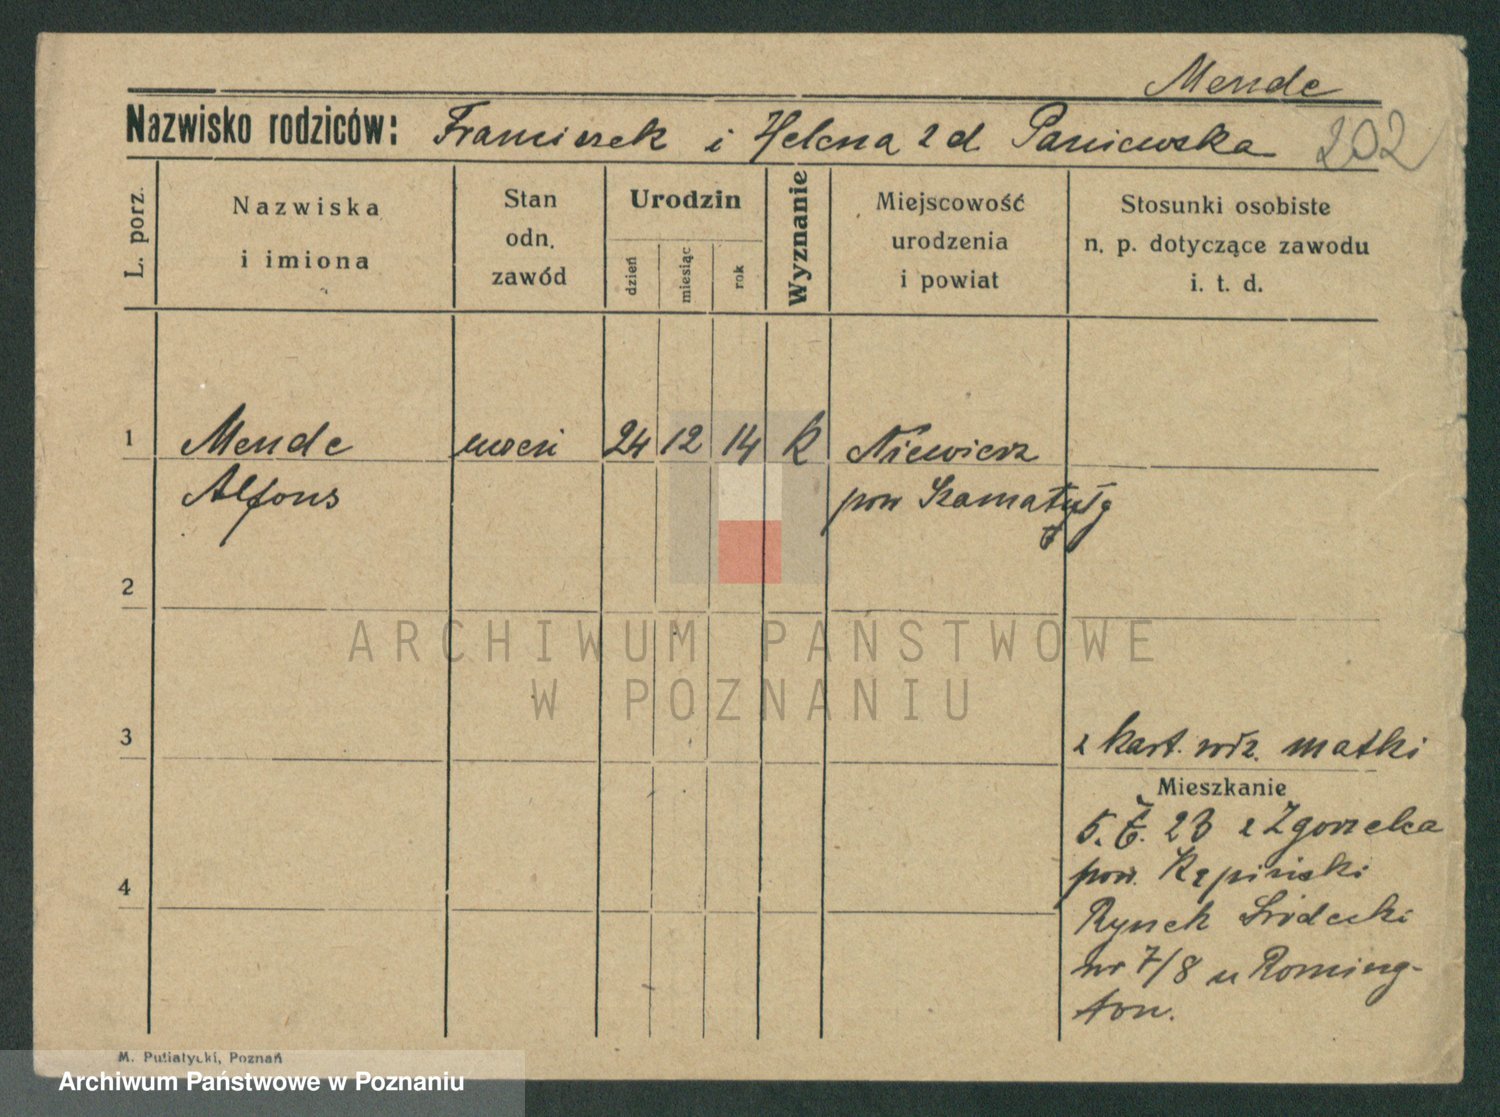 Mende
Nazwisko rodziców: Franciszek i Helena z d Paniewska 202
L. porz.
Nazwiska
i imiona
Stan
odn.
zawód
Urodzin
dzień
miesiąc
rok
Wyznanie
Miejscowość
urodzenia
i powiat
Stosunki osobiste
n. p. dotyczące zawodu
i. t. d.
1 Mende uczeń 24 12 14 k Niewierz
Alfons pow Szamatuły
2
ARCHIWUM PAŃSTWOWE
W POZNANIU
3 z kart. matki
Mieszkanie
23 z Zgorzelca
pow. Kępiński
4
Rynek Śródecki
nr 7/8 u Roming-
ton.
M. Putiatycki, Poznań
Archiwum Państwowe w Poznaniu